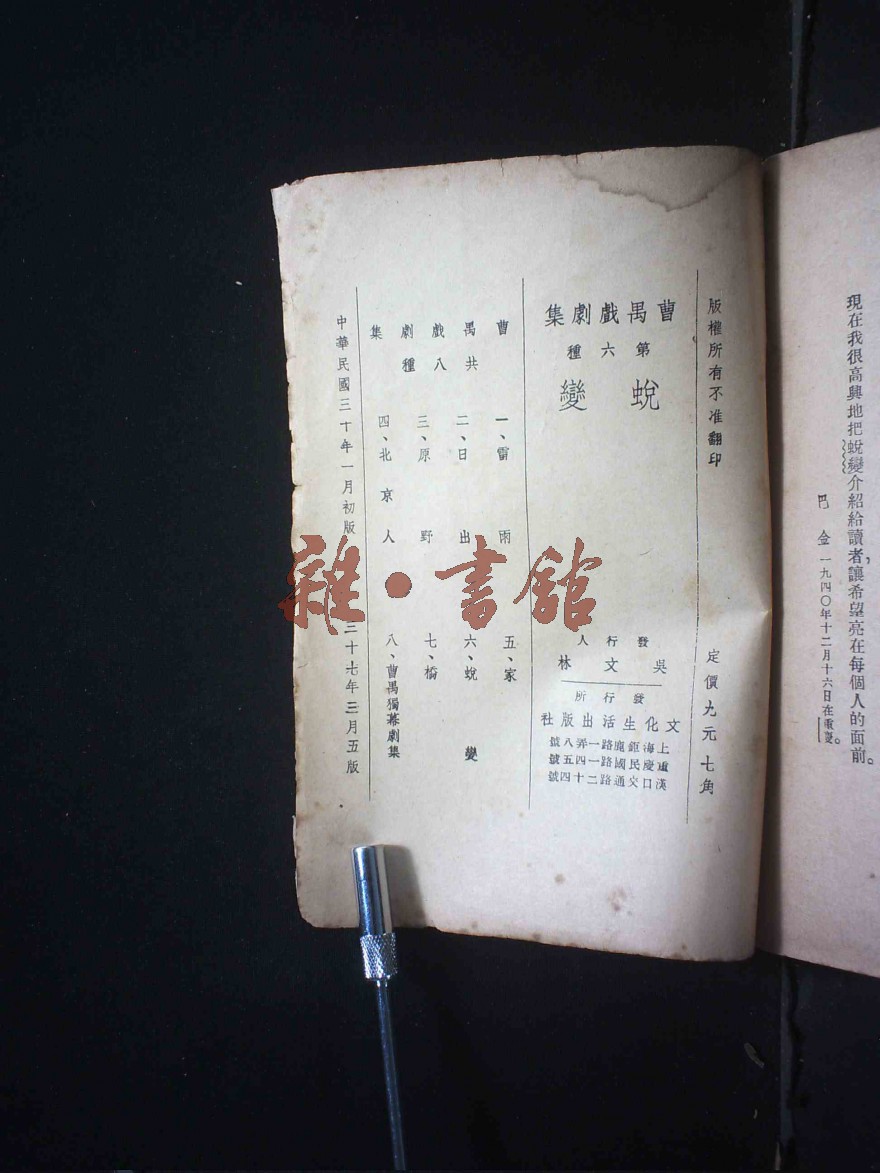 現在我很高興地把蛻變介紹給讀者，讓希望亮在每個人的面前。
巴金 一九四〇年十二月十六日在重慶。
版權所有不准翻印
定價九元七角
曹禺戲劇集
第六種
蛻變
發行人
吳文林
發行所
文化生活出版社
上海鉅鹿路一弄八號
重慶民國路一四五號
漢口交通路二十四號
曹禺戲劇集
共八種
一、雷雨
二、日出
三、原野
四、北京人
五、家
六、蛻變
七、橋
八、曹禺獨幕劇集
中華民國三十年一月初版
三十七年三月五版
雜·書館